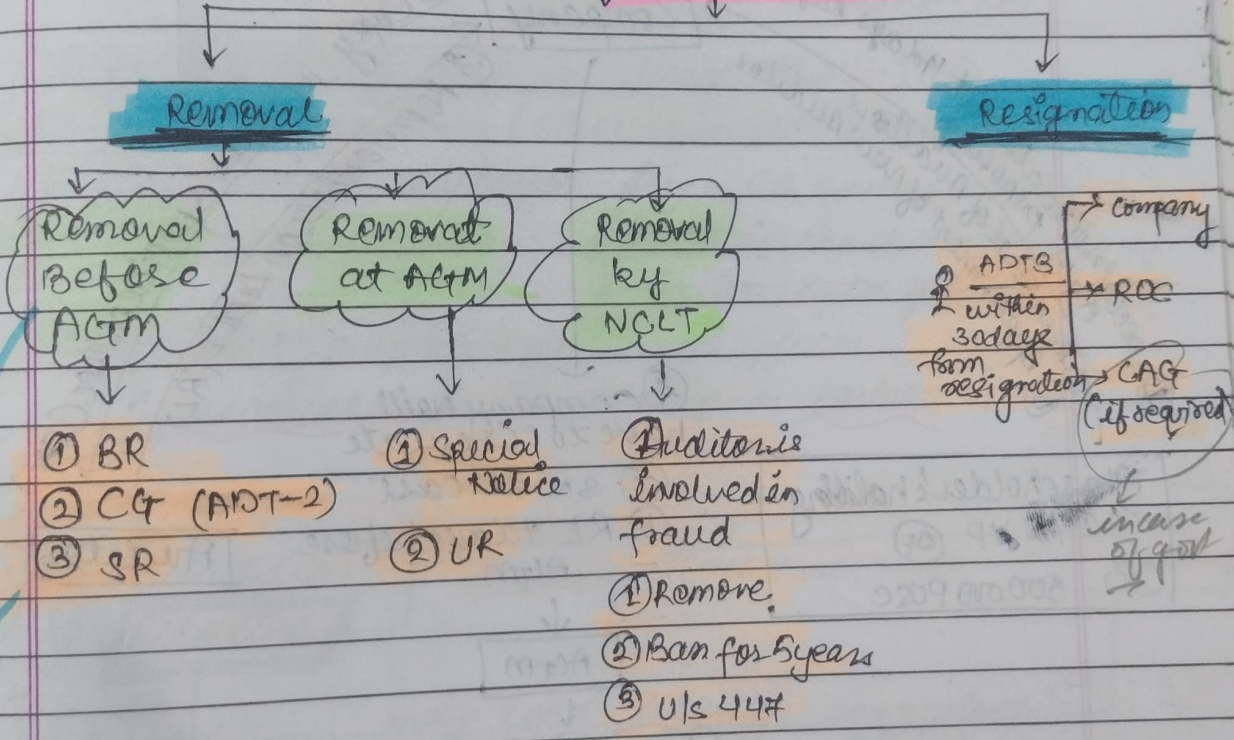 Removal
Resignation
Removal
Before
AGM
Removal
at AGM
Removal
by
NCLT
① BR
② CG (ADT-2)
③ SR
① Special
Notice
② UR
① Auditor is
involved in
fraud
① Remove.
② Ban for 5 years
③ u/s 447
ADT3
within
30 days
from
resignation
Company
ROC
CAG
(if required)
in case
of govt